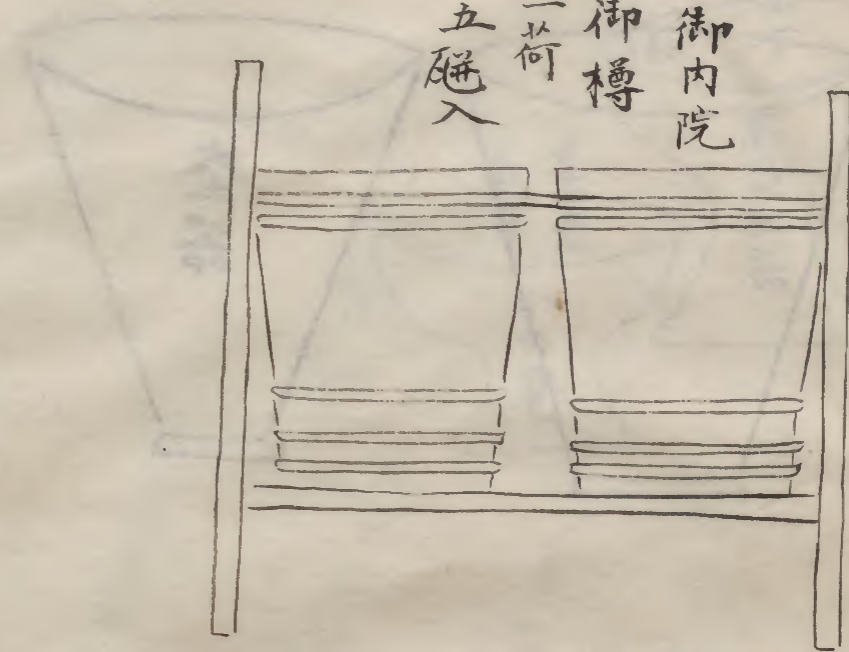 御内院
御樽
一荷
五𤭖入